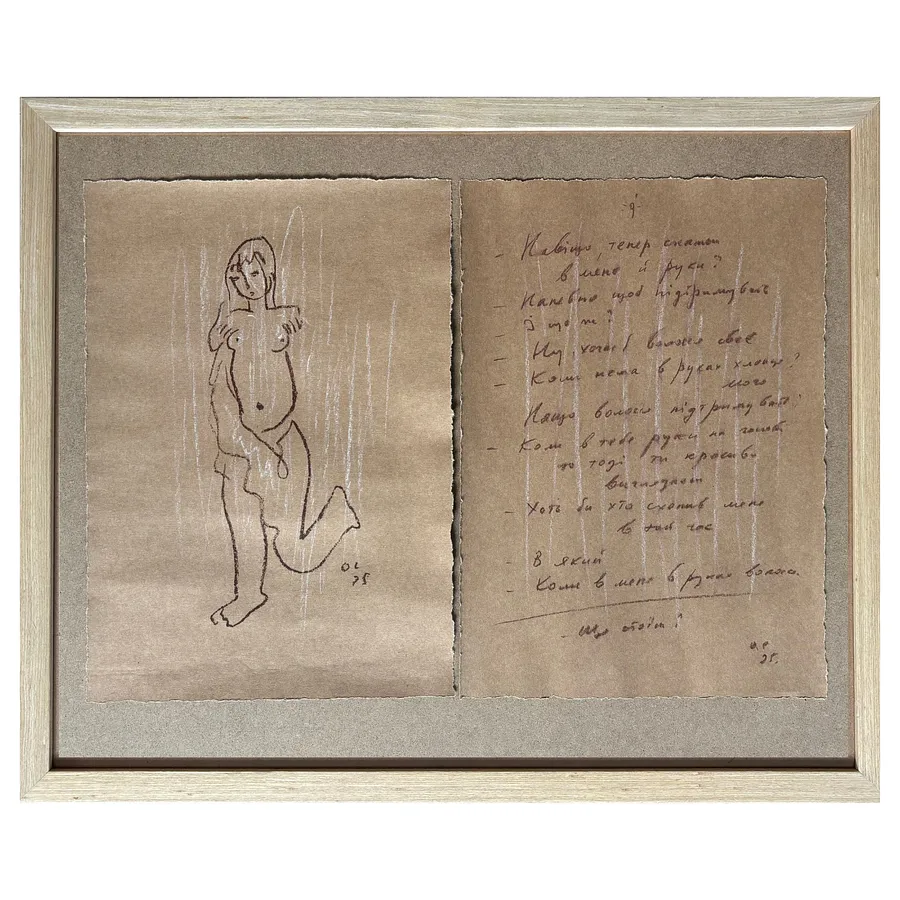 О L
25
- 9 -
- Навіщо тепер
в мене й руки?
- Напевно щоб підтримувать
- І що ж?
- Ну, хочаб волосся своє
- Коли нема в руках хлопця мого?
Нащо волосся підтримувать?
- Коли в тебе руки на
то тоді ти красиво
виглядаєш
- Хоть би хто схопив мене
в той час
- В який
- Коли в мене в руках волосся
- Що
25.